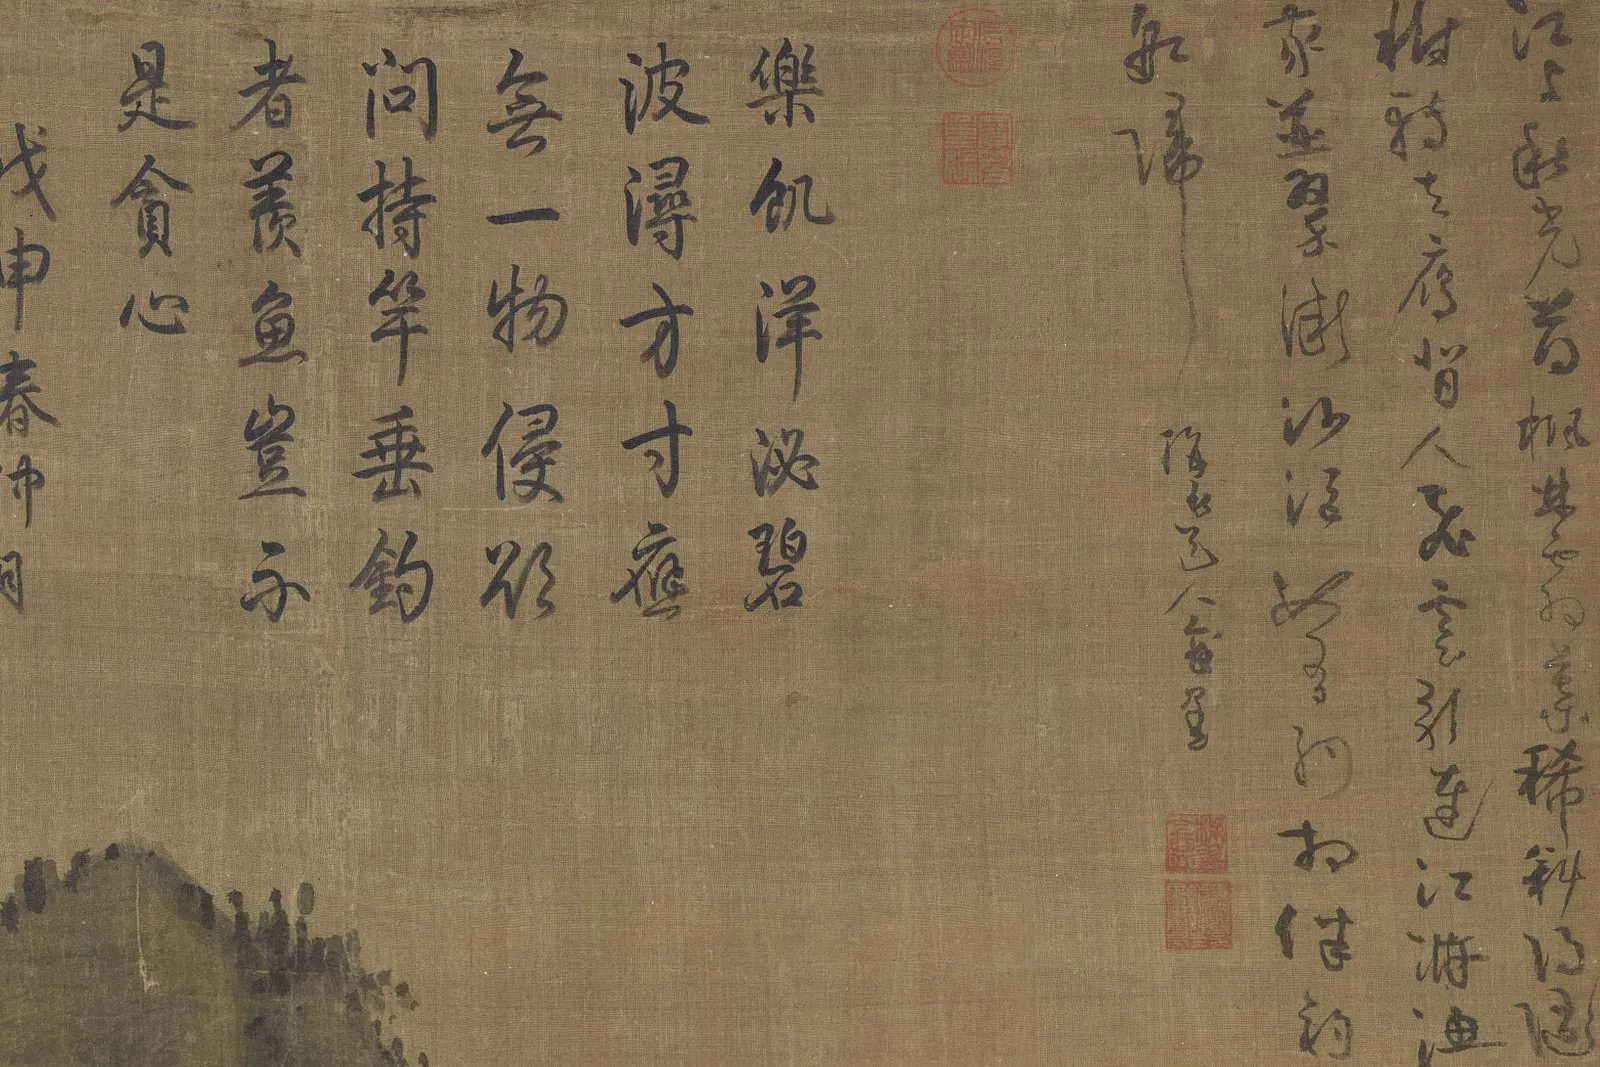 江上秋光薄楓林霜葉稀斜陽隨
樹轉去鴈背人飛雲影連江滸漁
家並翠微沙如有約相伴釣
船歸
梅花道人戲墨
樂飢洋泌碧
波潯方寸應
無一物侵欲
問持竿垂釣
者羨魚豈不
是貪心
戊申春